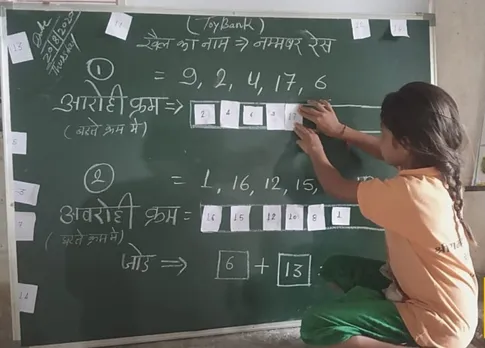 (ToyBank)
Date
20/8/2020
Thursday
खेल का नाम ⇒ नम्मबर रेस
① = 9, 2, 4, 17, 6
आरोही क्रम ⇒ 2 4 6
(बढ़ते क्रम में)
② = 1, 16, 12, 15,
अवरोही क्रम = 16 15 12 10 8 1
(घटते क्रम में)
जोड़ ⇒ 6 + 13 :
13
11